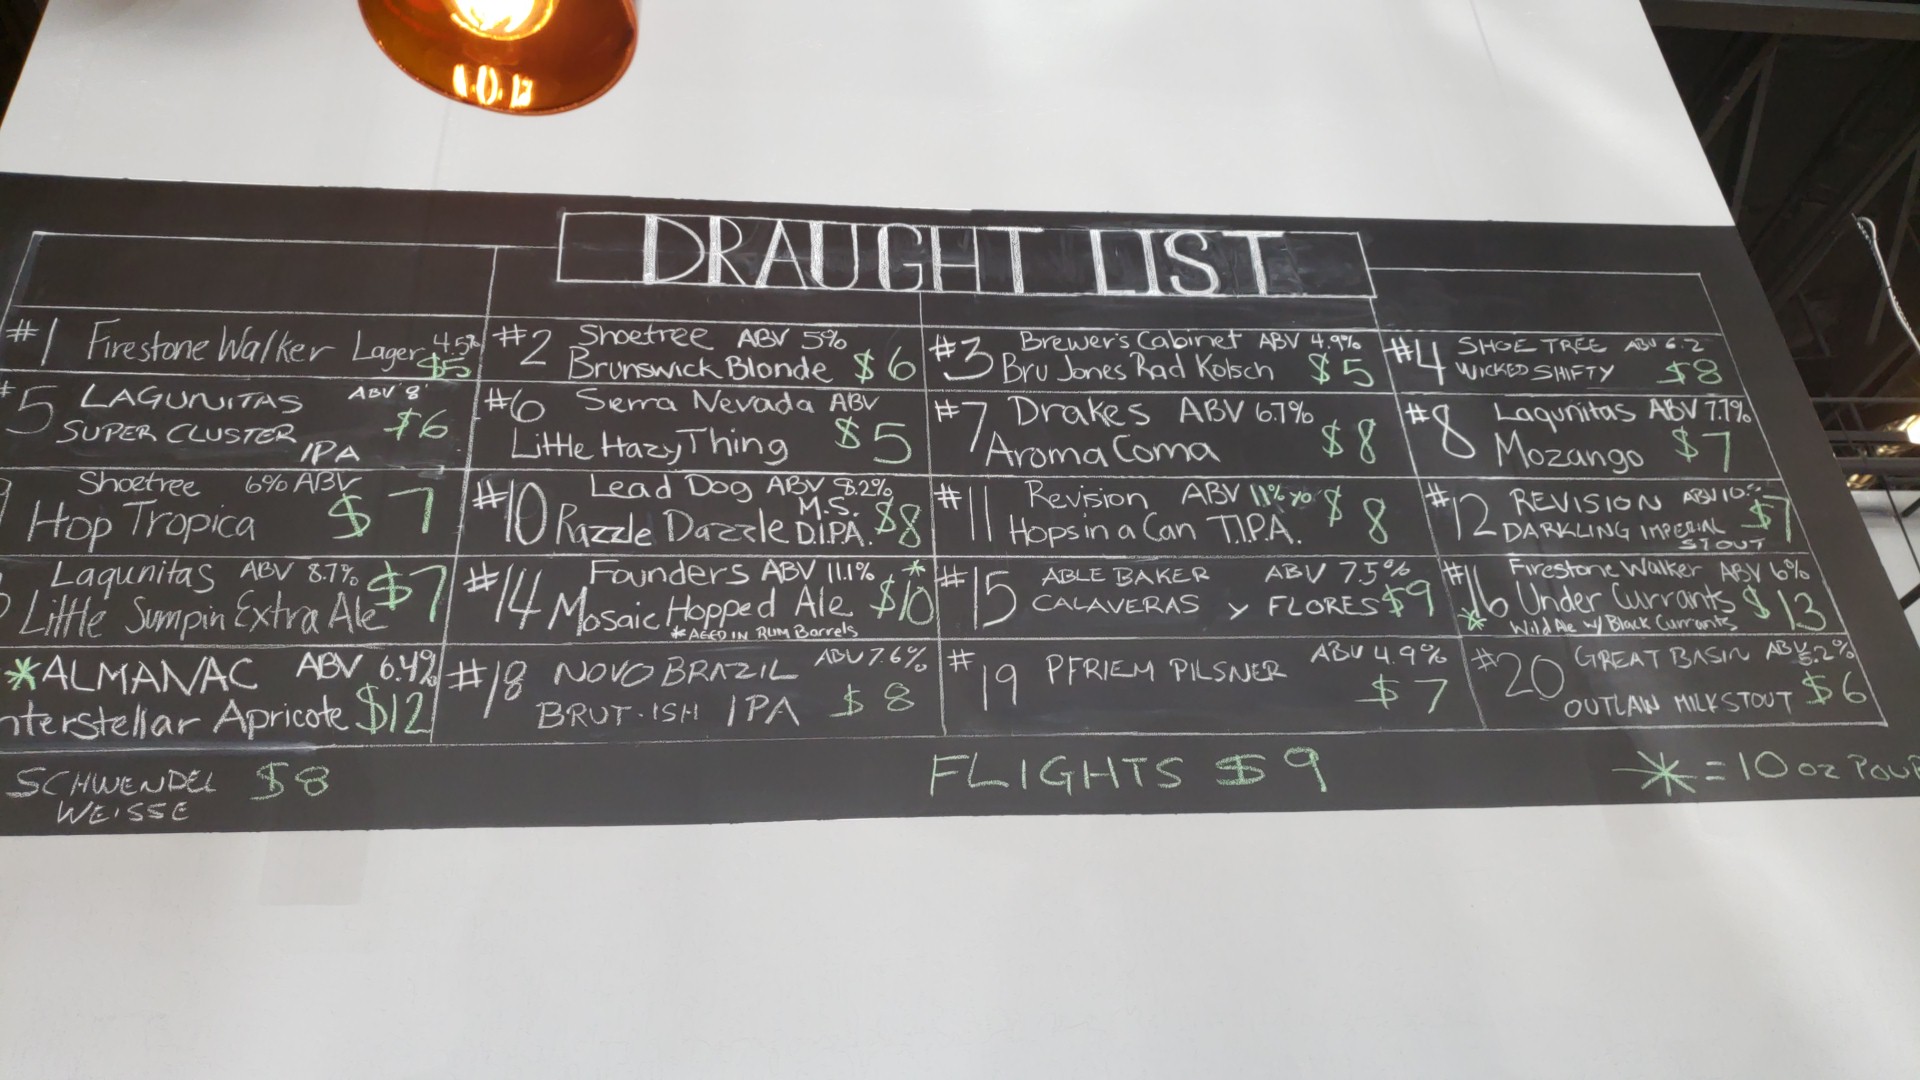 DRAUGHT LIST
#1 Firestone Walker Lager 4.5%
$5
#2 Shoetree ABV 5%
Brunswick Blonde $6
#3 Brewer's Cabinet ABV 4.9%
Bru Jones Rad Kolsch $5
#4 SHOE TREE ABV 6.2
WICKED SHIFTY $8
#5 LAGUNITAS ABV 8
SUPER CLUSTER $6
IPA
#6 Sierra Nevada ABV
Little Hazy Thing $5
#7 Drakes ABV 6.7%
Aroma Coma $8
#8 Lagunitas ABV 7.7%
Mozango $7
Shoetree 6% ABV
Hop Tropica $7
#10 Lead Dog ABV 8.2%
M.S.
Razzle Dazzle D.I.PA. $8
#11 Revision ABV 11%
Hops in a Can T.I.P.A. $8
#12 REVISION ABV 10%
DARKLING IMPERIAL $7
STOUT
Lagunitas ABV 8.7% $7
Little Sumpin Extra Ale
#14 Founders ABV 11.1% *
Mosaic Hopped Ale $10
*AGED IN RUM Barrels
#15 ABLE BAKER ABV 7.5%
CALAVERAS y FLORES $9
#16 Firestone Walker ABV 6%
Under Currants $13
* Wild Ale w/ Black Currants
*ALMANAC ABV 6.4%
nterstellar Apricote $12
#18 NOVO BRAZIL ABV 7.6%
BRUT-ISH IPA $8
#19 PFRIEM PILSNER ABV 4.9%
$7
#20 GREAT BASIN ABV 5.2%
OUTLAW MILK STOUT $6
SCHWENDEL $8
WEISSE
FLIGHTS $9
* = 10 oz POUR